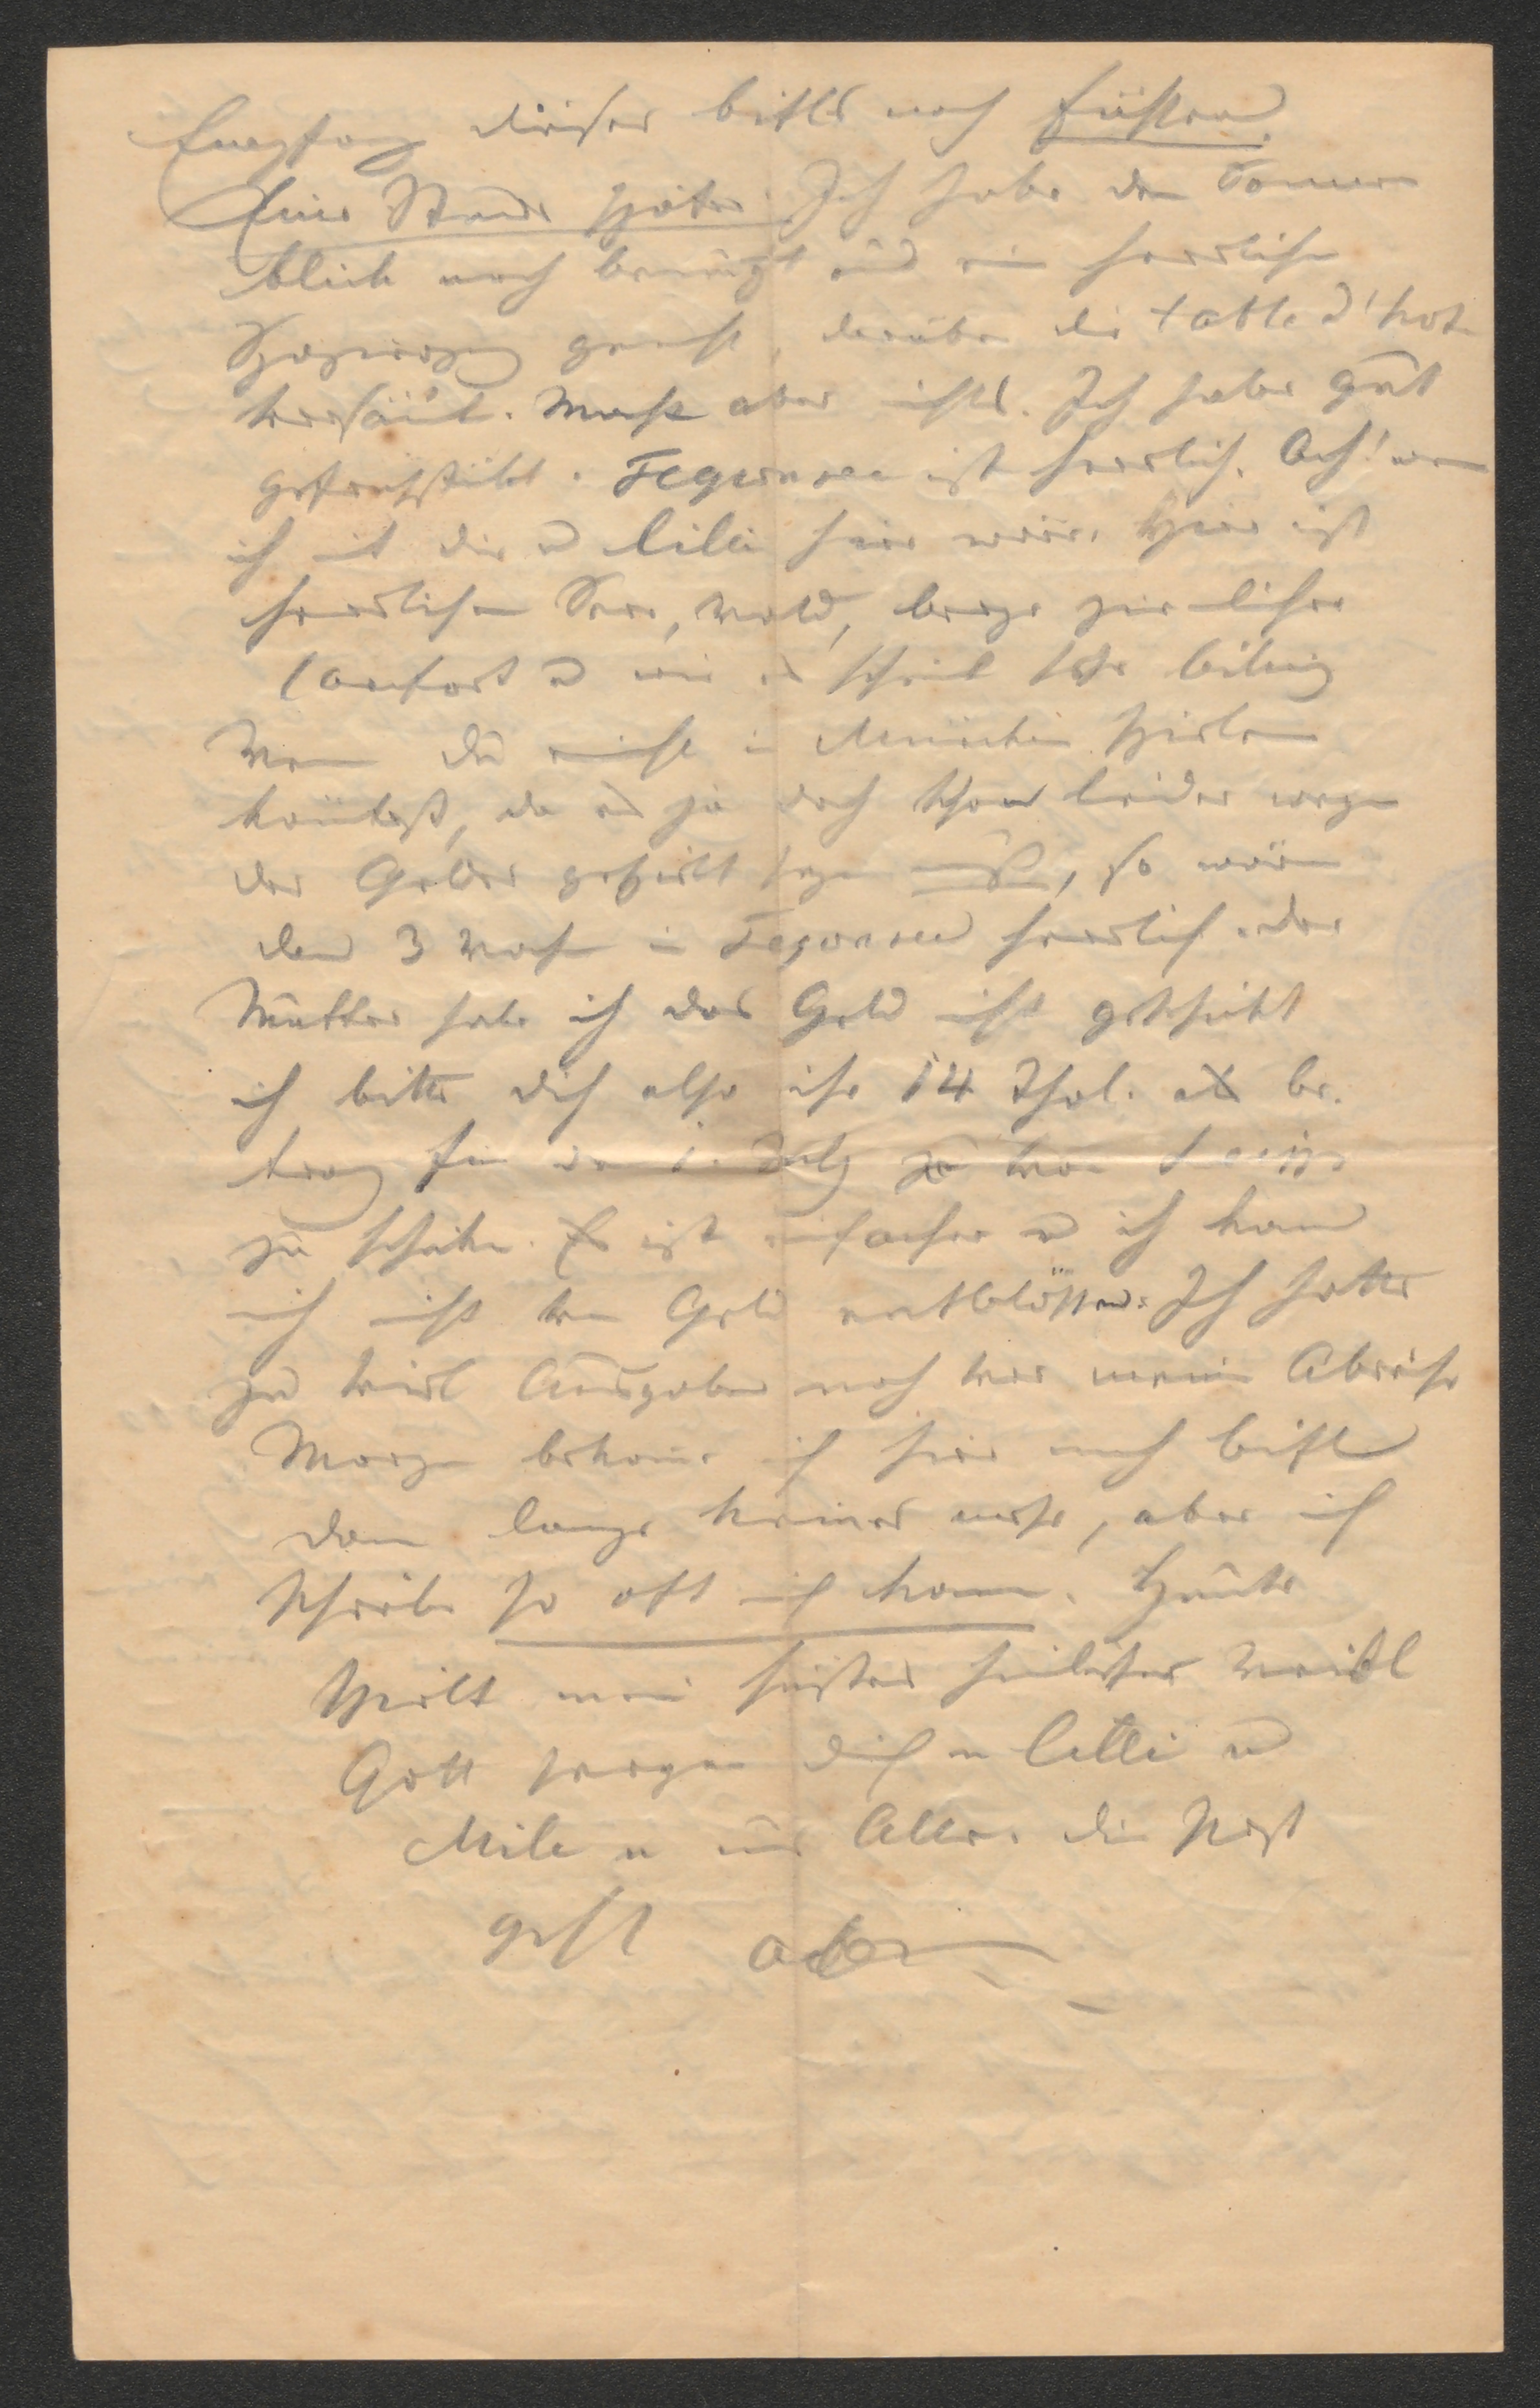 Empfang dieses bitte nach Füssen.
Eine Stunde später. Ich habe den Sonnen
blick noch benützt und ein herrlichen
Spaziergang gemacht, darüber die table d'hote
versäumt. Macht aber nichts. Ich habe gut
gefrühstückt. Tegernsee ist herrlich. Ach! wen
ich mit dir u Lilli hier wäre. Hier ist
herrlichen See, Wald, berge ziemlicher
Comfort u wie es scheint sehr billig
Wen du nicht in München spielen
köntest, da es ja doch schon leider wegen
der Gelder gespielt sein muß, so wären
den 3 Wochen in Tegernsee herrlich. der
Mutter habe ich das Geld nicht geschickt
ich bitte dich also ihr 14 Thal. als be.
trag für den 1. July zu
zu schicken. Es ist einfacher u ich kann
mich nicht von Geld entblößen. Ich hatte
zu viel Ausgaben noch vor meine Abreise
Morgen bekome ich hier noch
dann lange keines mehr, aber ich
schreibe so oft ich kann. Heute
spielt mein Weibl
Gott segne dich u Lilli u
Mila u uns Alle. die Post
geht